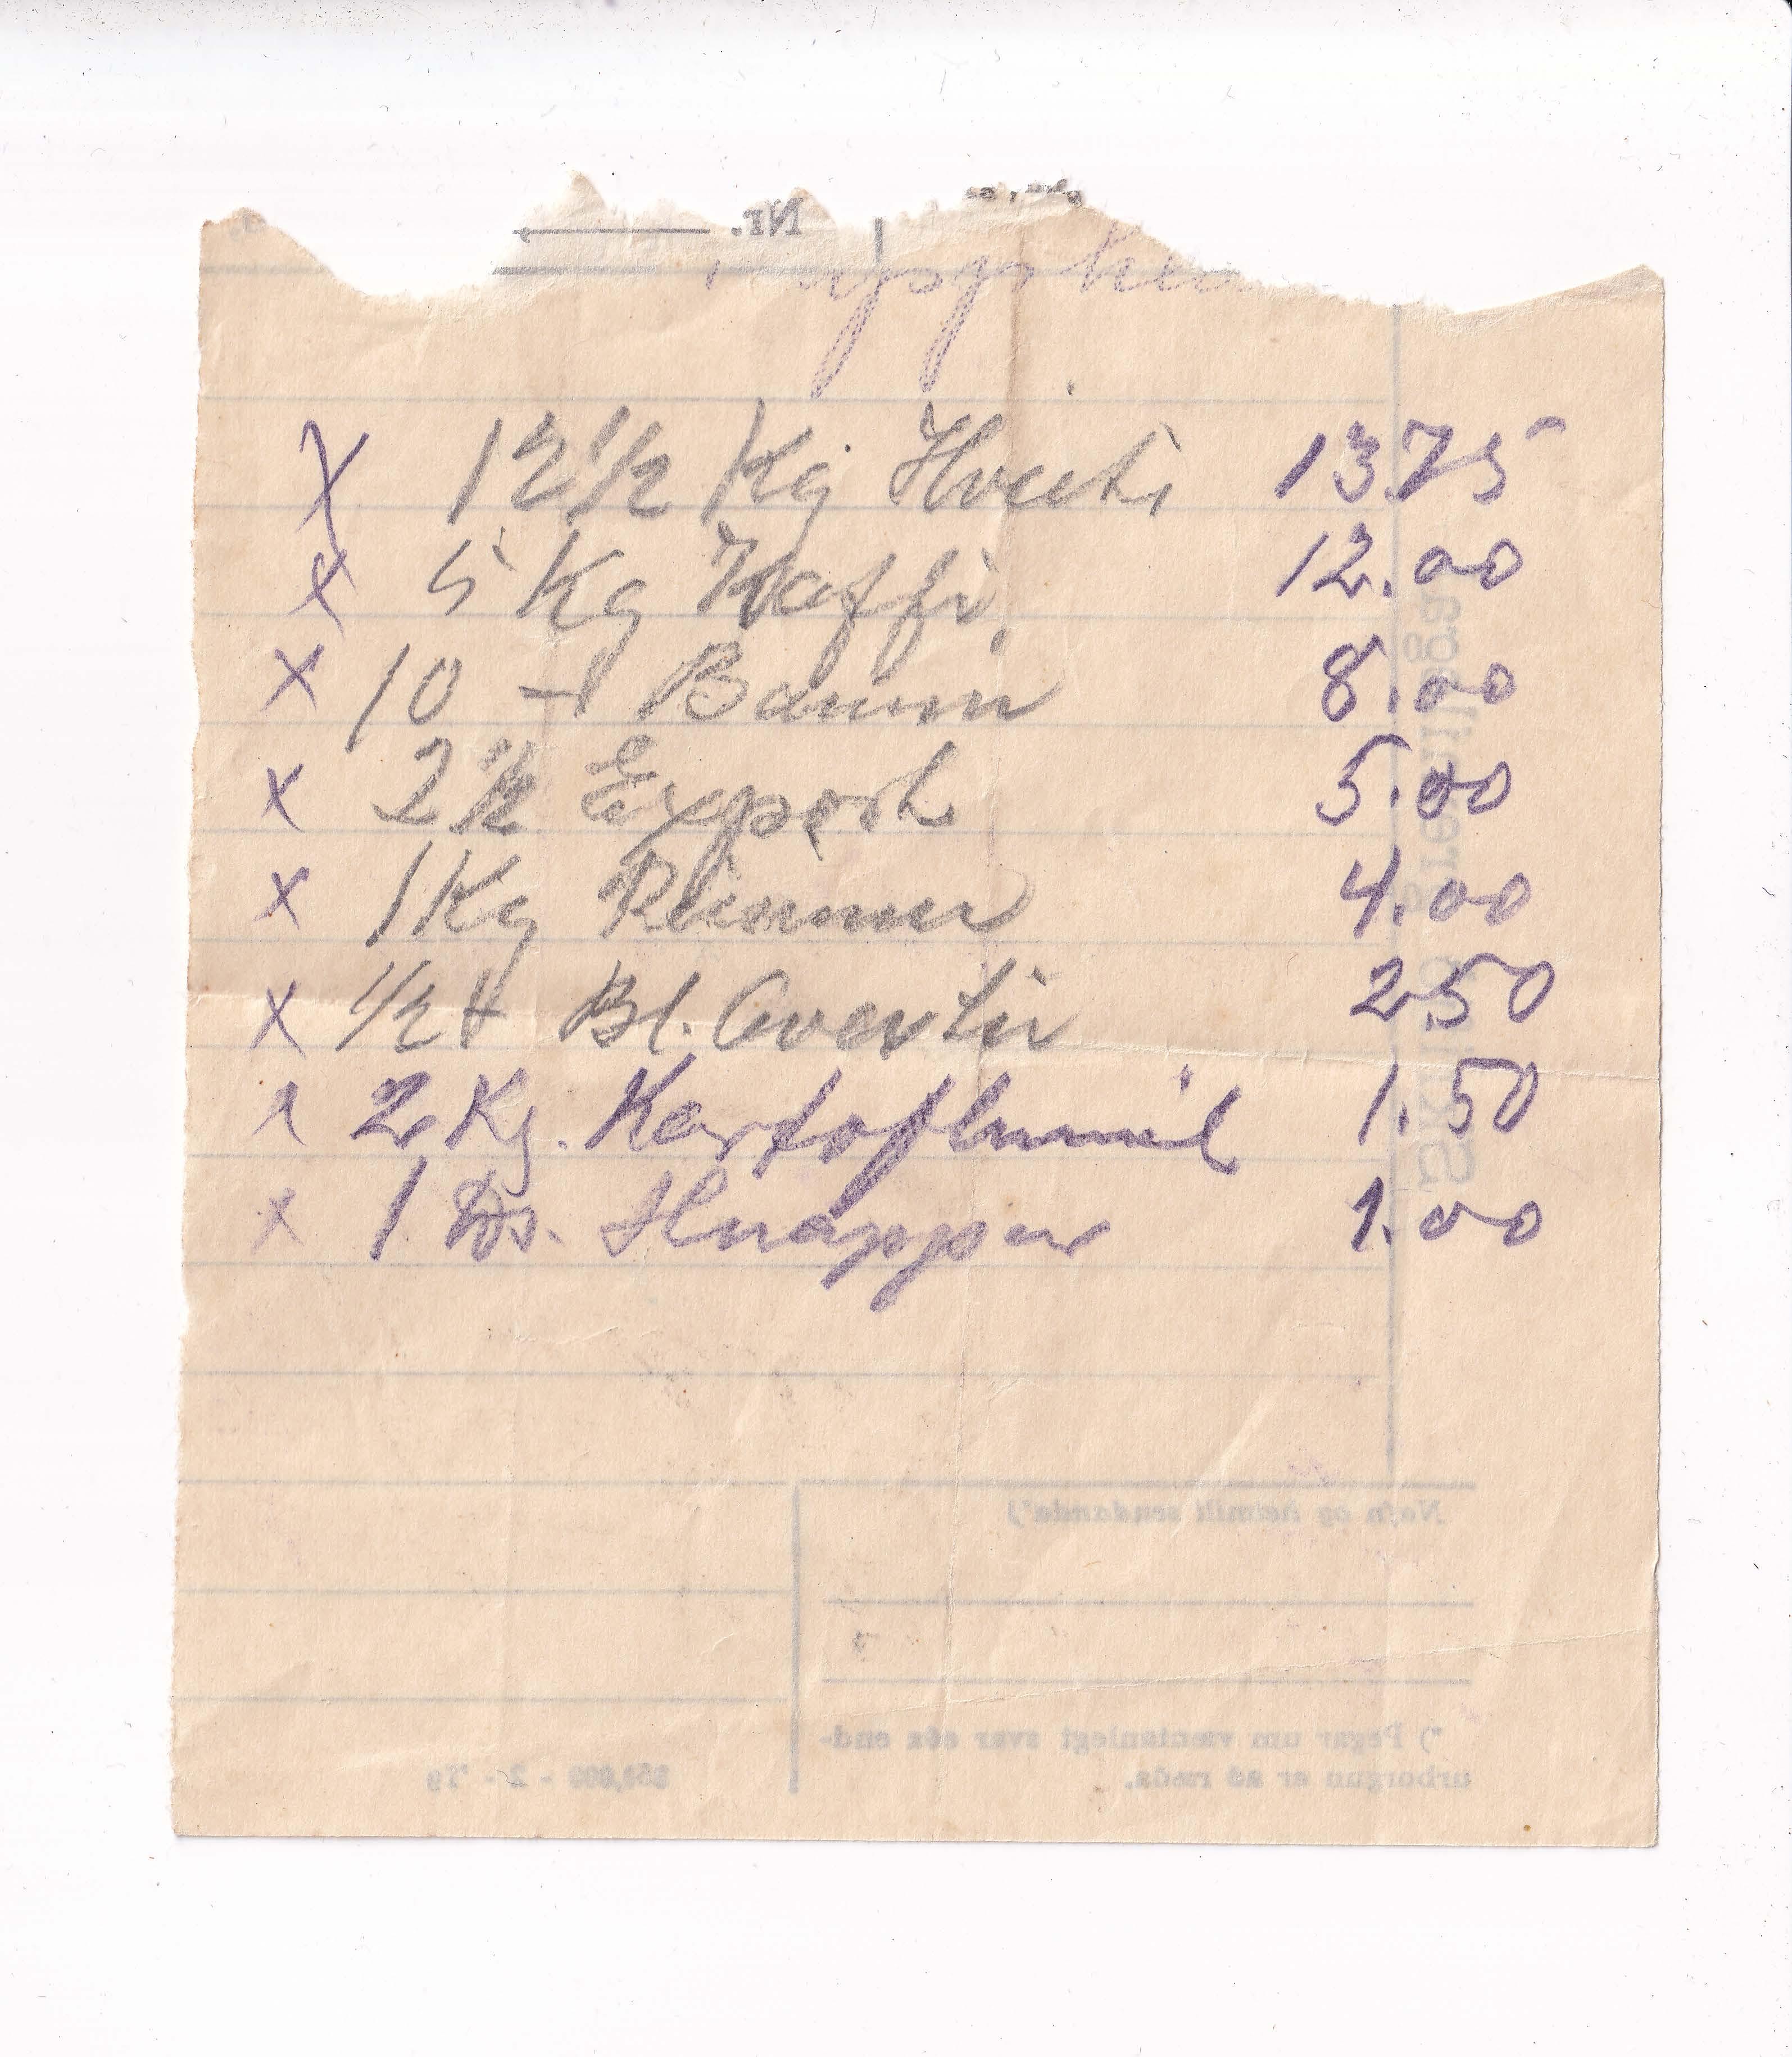 Nr.
X 12 1/2 Kg Hveiti 13.75
X 5 Kg Kaffi 12.00
X 10 - Baunir 8.00
X 2 1/2 Export 5.00
X 1 Kg Rúsinur 4.00
X 1/2 Bl. Avextir 2.50
x 2 Kg. Kartoflumél 1.50
x 1 Ds. Hnappar 1.00
Nafn og heimili sendanda*)
*) Þegar um væntanlegt svar eða end-
urborgun er að ræða.